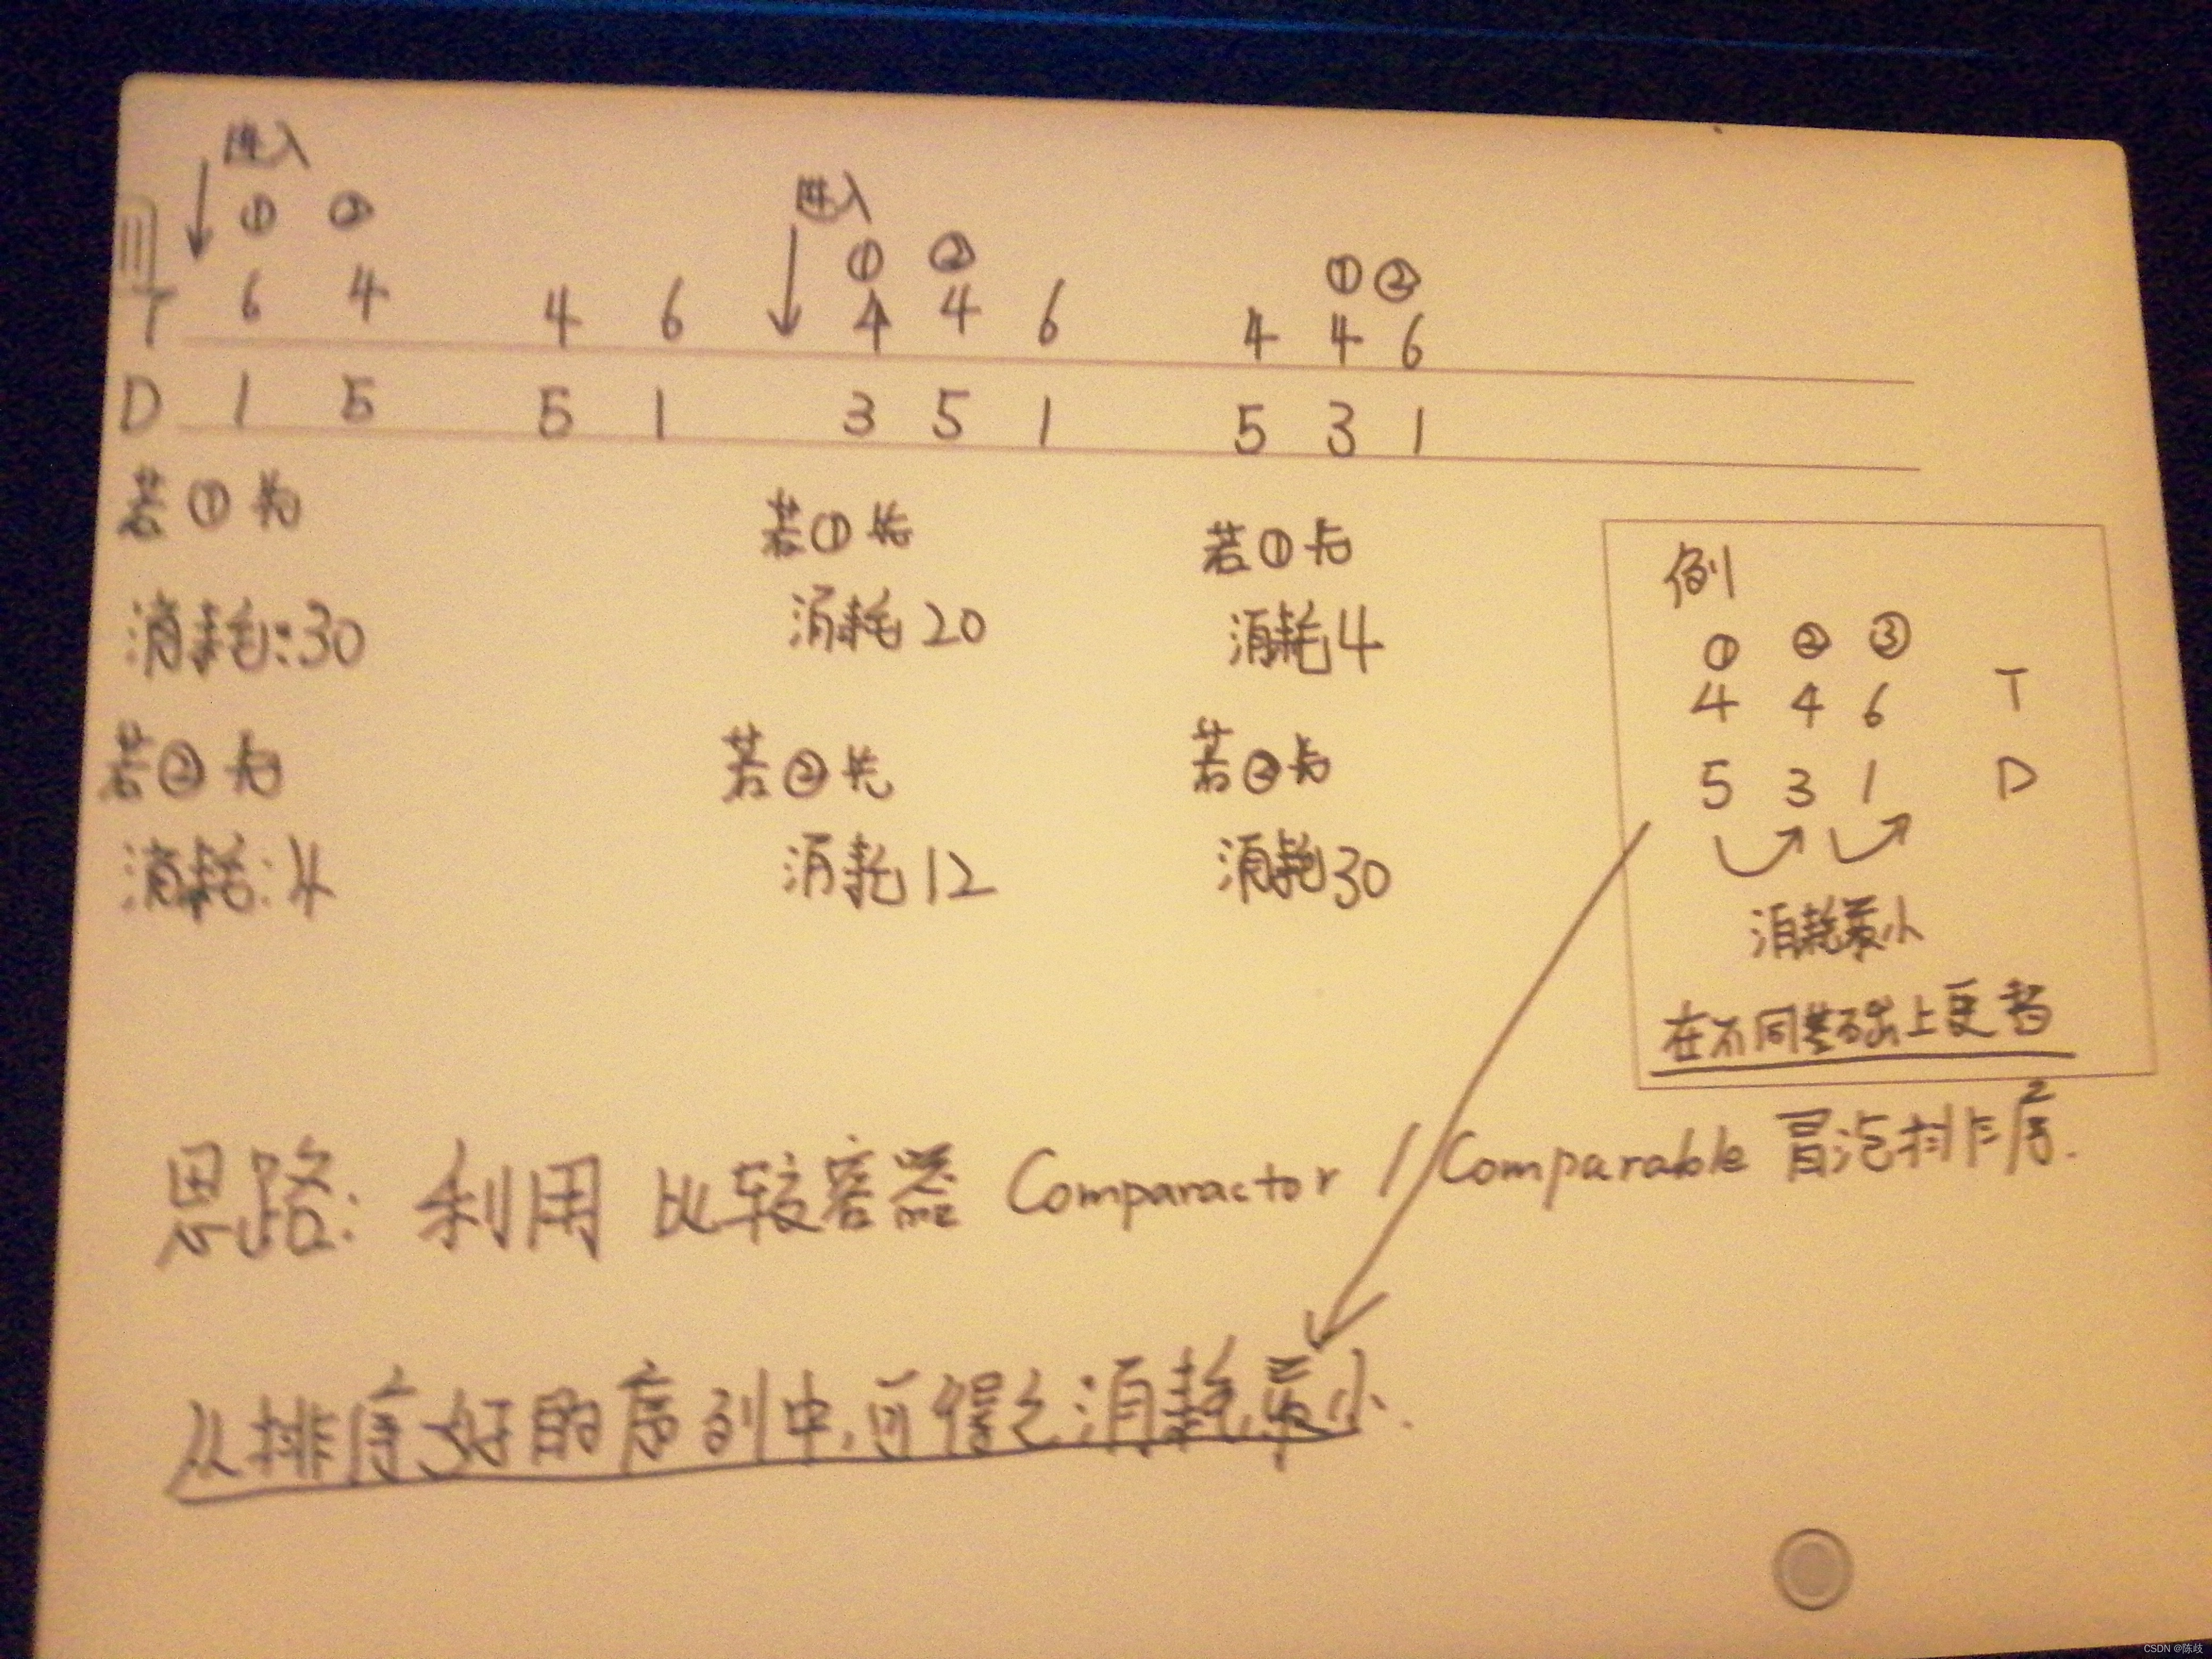 进入
① ②
T 6 4 4 6 4 4 6 4 4 6
D 1 5 5 1 3 5 1 5 3 1
进入
① ②
① ②
若①先
消耗:30
若②先
消耗:4
若①先
消耗20
若②先
消耗12
若①先
消耗4
若②先
消耗30
例
① ② ③
4 4 6 T
5 3 1 D
消耗最小
在不同基础上更省
思路: 利用 比较容器 Comparactor / Comparable 冒泡排序.
从排序好的序列中,可得之消耗最小.
CSDN @陈歧